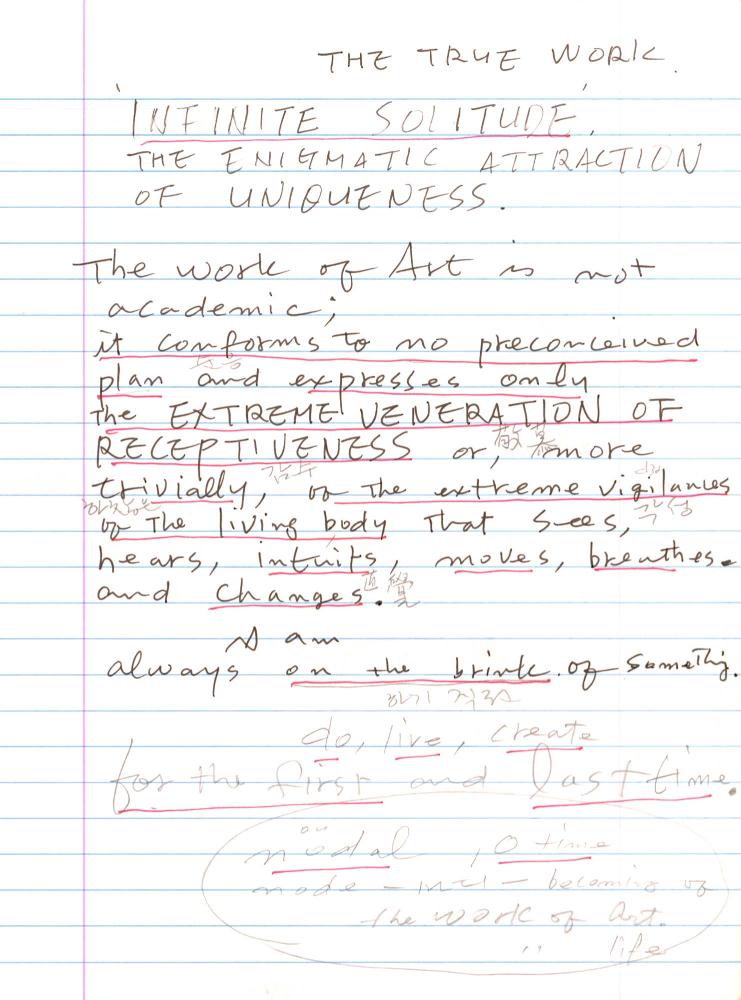 THE TRUE WORK.
INFINITE SOLITUDE.
THE ENIGMATIC ATTRACTION
OF UNIQUENESS.
The work of Art is not
academic;
it conforms to no preconceived
plan and expresses only
the EXTREME VENERATION OF
RECEPTIVENESS or, 敬慕 more
감수
trivially, of the extreme vigilances
하찮은 각성
of the living body that sees,
hears, intuits, moves, breathes.
直覺
and changes.
I am
always on the brink of something.
하기 직전
do, live, create
for the first and last time.
nodal , 0 time
node - 마디 - becoming of
the work of Art.
" life